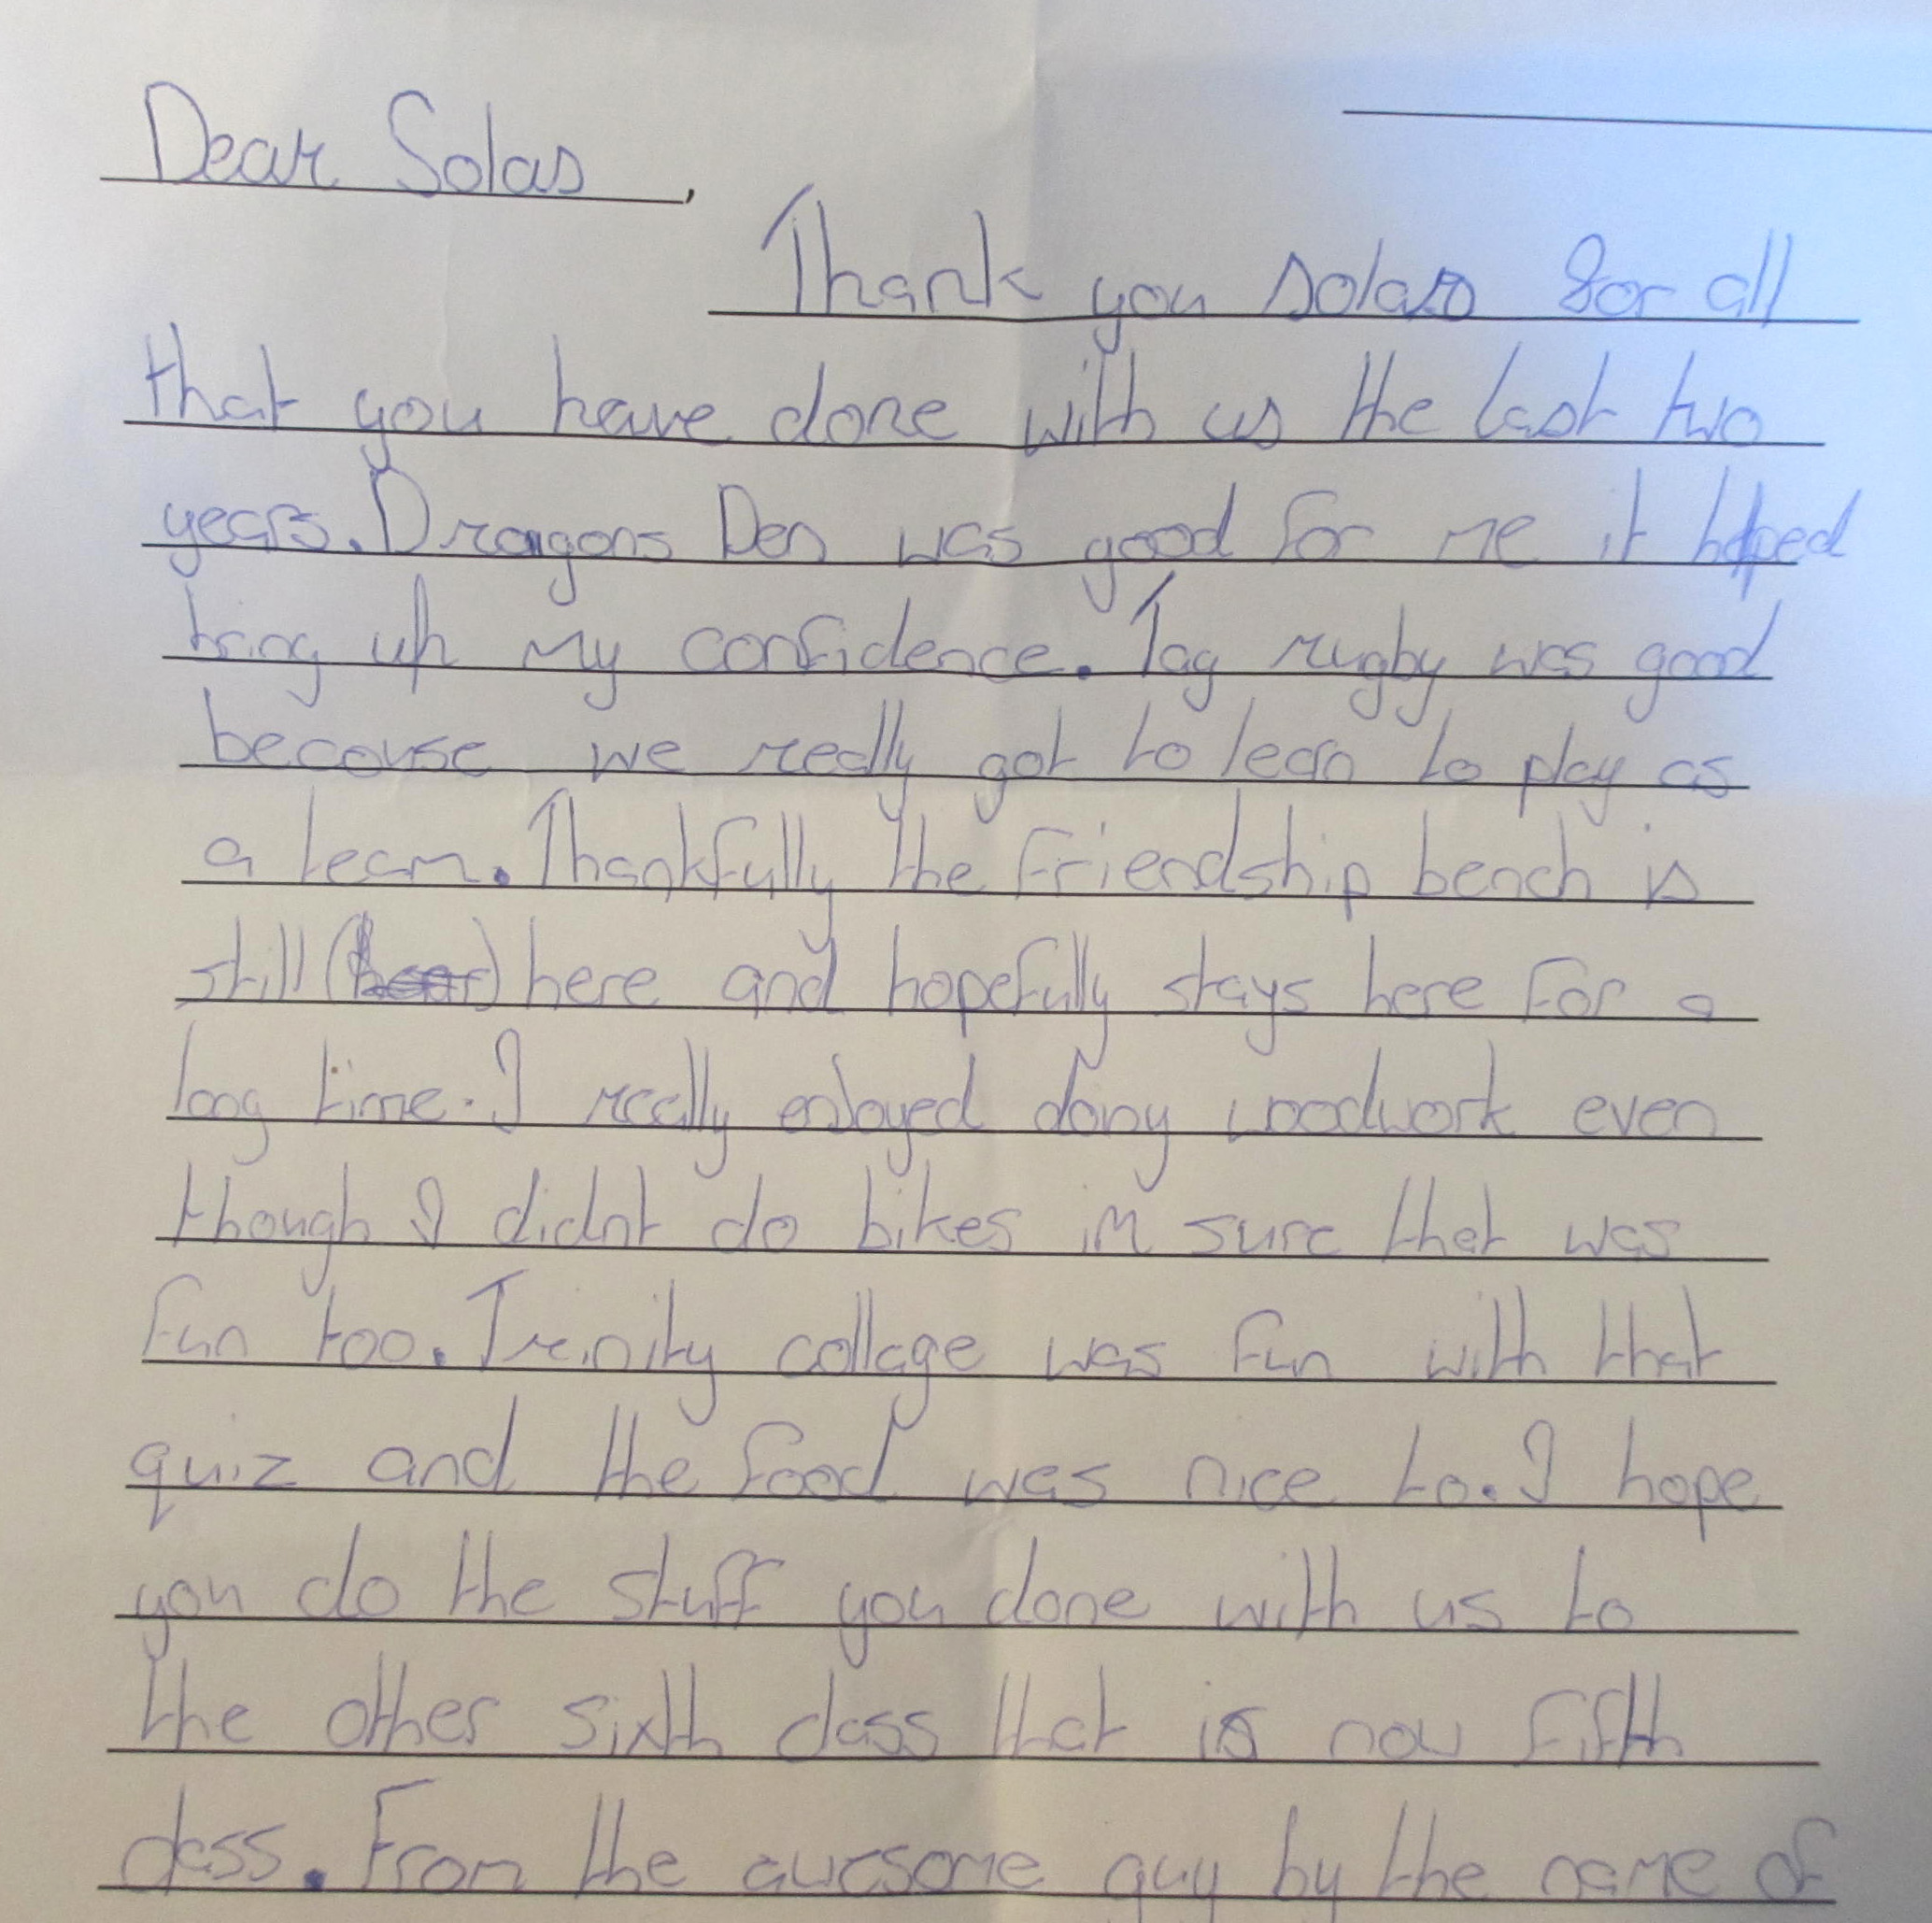 Dear Solas,
Thank you solas for all
that you have done with us the last two
years. Dragons Den was good for me it helped
bring up my confidence. Tag rugby was good
because we really got to learn to play as
a team. Thankfully the friendship bench is
still (hear) here and hopefully stays here for a
long time. I really enjoyed doing woodwork even
though I didnt do bikes im sure that was
fun too. Trinity collage was fun with that
quiz and the food was nice to. I hope
you do the stuff you done with us to
the other sixth class that is now fifth
class. From the awesome guy by the name of